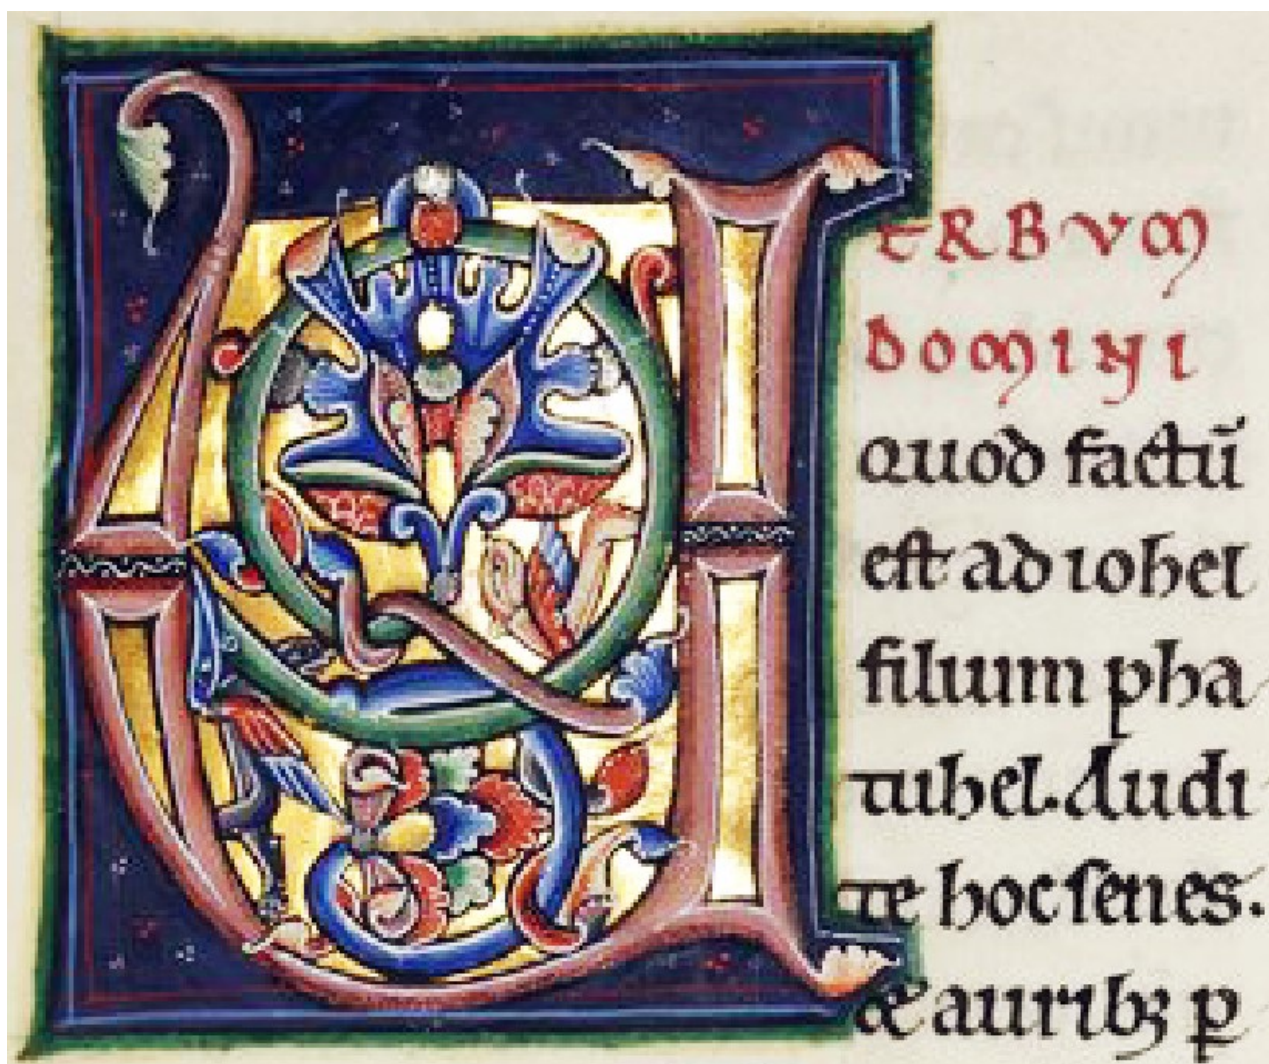 V
ERBVM
DOMINI
quod factū
est ad iohel
filium pha
tuhel. Audi
te hoc senes.
& auribꝫ ꝑ